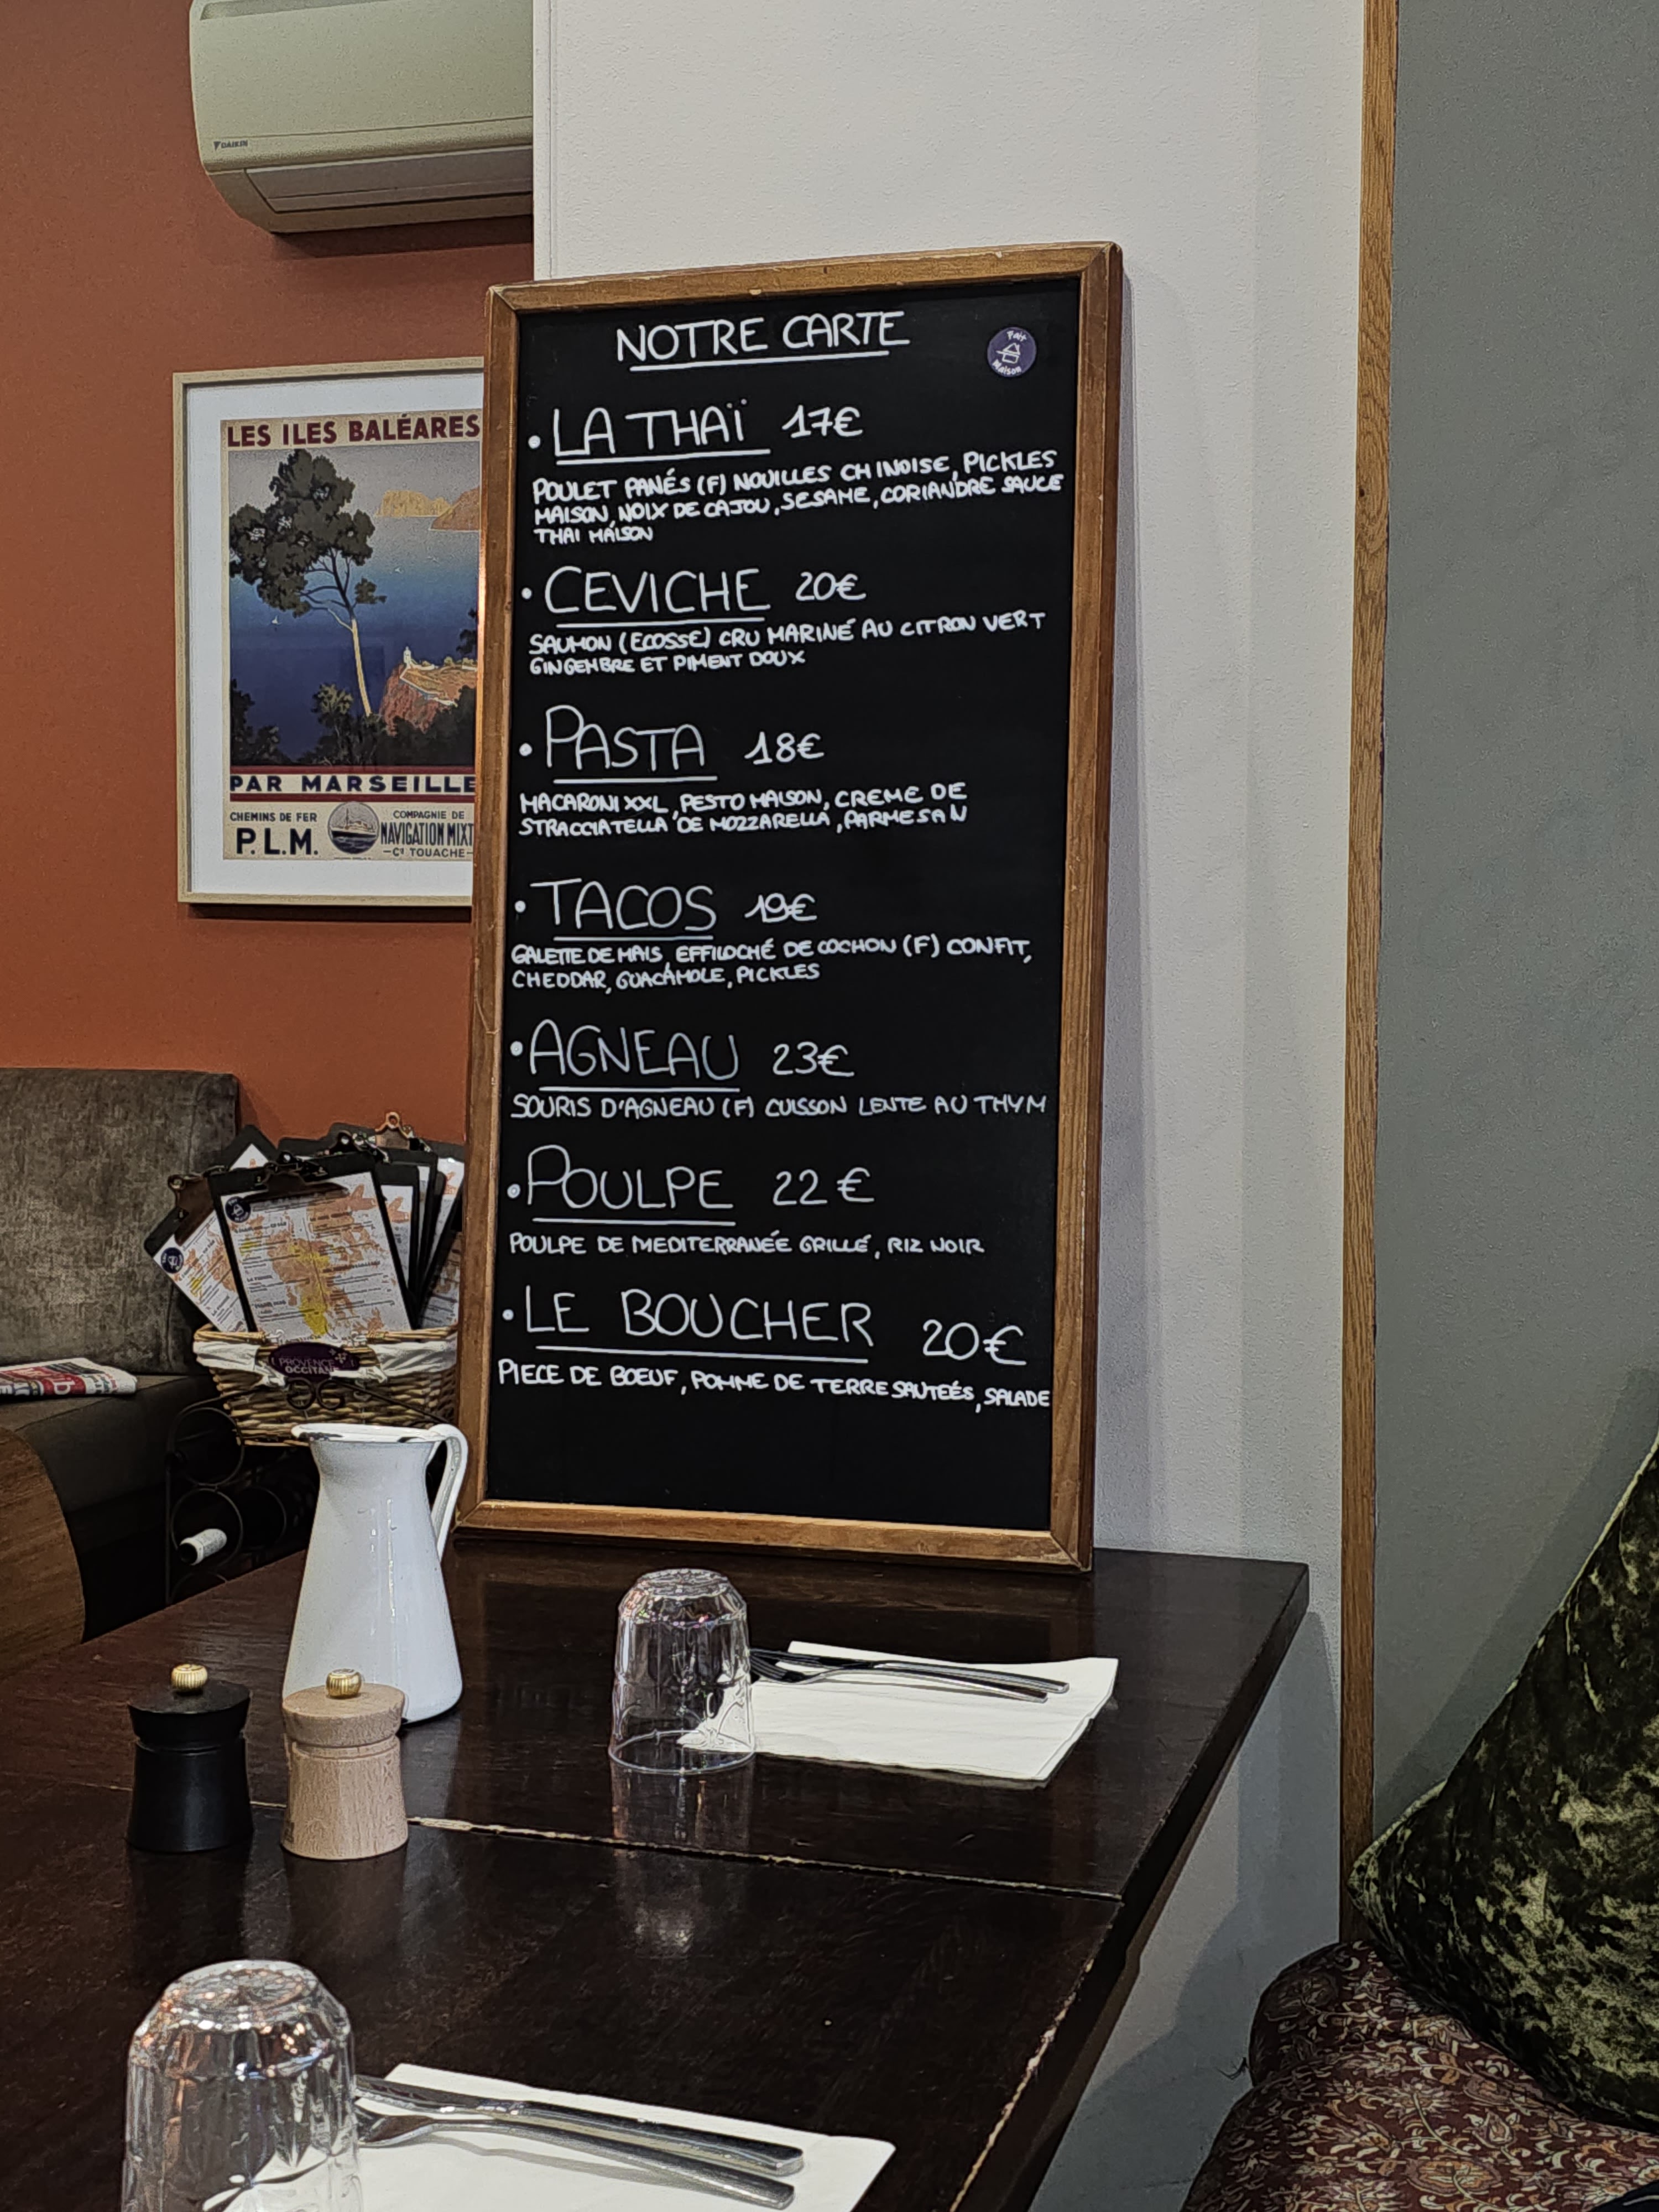 DAIKIN
NOTRE CARTE
Fait
Maison
• LA THAÏ 17€
POULET PANÉS (F) NOUILLES CHINOISE, PICKLES
MAISON, NOIX DE CAJOU, SESAME, CORIANDRE SAUCE
THAI MAISON
• CEVICHE 20€
SAUMON (ECOSSE) CRU MARINÉ AU CITRON VERT
GINGEMBRE ET PIMENT DOUX
• PASTA 18€
MACARONI XXL, PESTO MAISON, CREME DE
STRACCIATELLA DE MOZZARELLA, PARMESAN
• TACOS 19€
GALETTE DE MAIS, EFFILOCHÉ DE COCHON (F) CONFIT,
CHEDDAR, GUACAMOLE, PICKLES
• AGNEAU 23€
SOURIS D'AGNEAU (F) CUISSON LENTE AU THYM
• POULPE 22€
POULPE DE MEDITERRANÉE GRILLÉ, RIZ NOIR
• LE BOUCHER 20€
PIECE DE BOEUF, POMME DE TERRE SAUTEÉS, SALADE
LES ILES BALÉARES
PAR MARSEILLE
CHEMINS DE FER
P.L.M.
COMPAGNIE DE
NAVIGATION MIXT
-Cie TOUACHE-
PROVENCE
OCCITANE